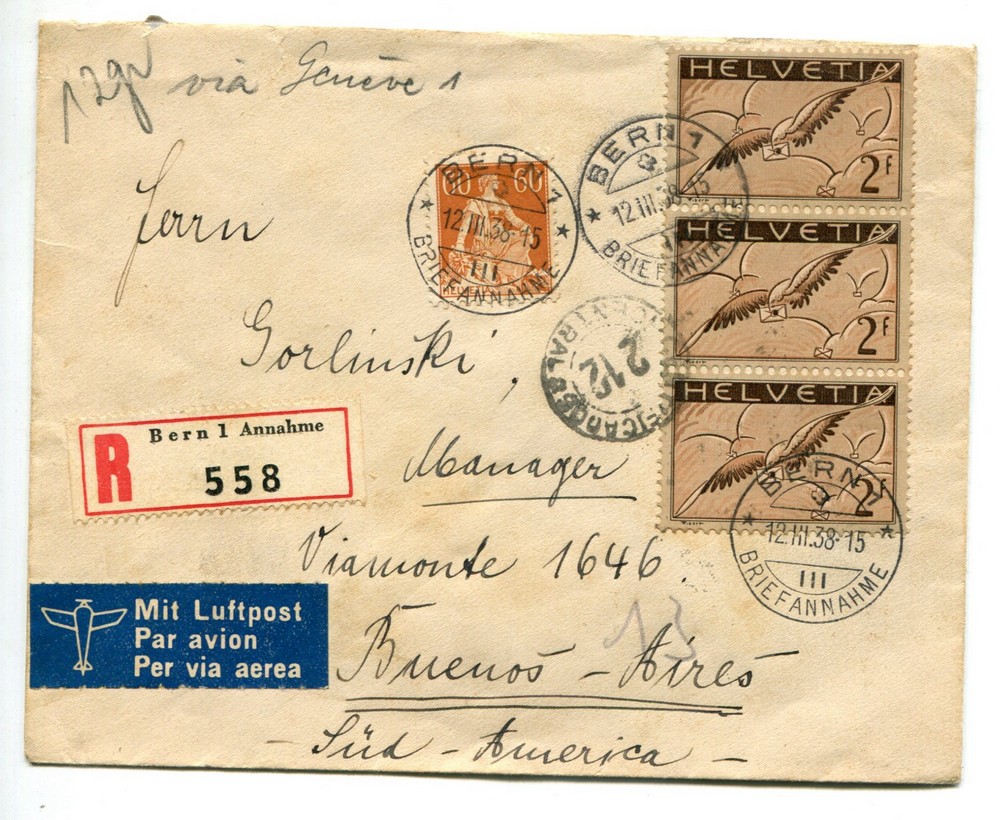 12gr via Genève 1
HELVETIA
2 F
HELVETIA
2 F
HELVETIA
2 F
60 60
HELVETIA
BERN 1
3
12.III.38-15
III
BRIEFANNAHME
BERN 1
3
12.III.38-15
III
BRIEFANNAHME
Herrn
Gorlinski,
212
R
Bern 1 Annahme
558
Manager
BERN 1
3
12.III.38-15
III
BRIEFANNAHME
Viamonte 1646.
13
Mit Luftpost
Par avion
Per via aerea
Buenos - Aires
- Süd - America -